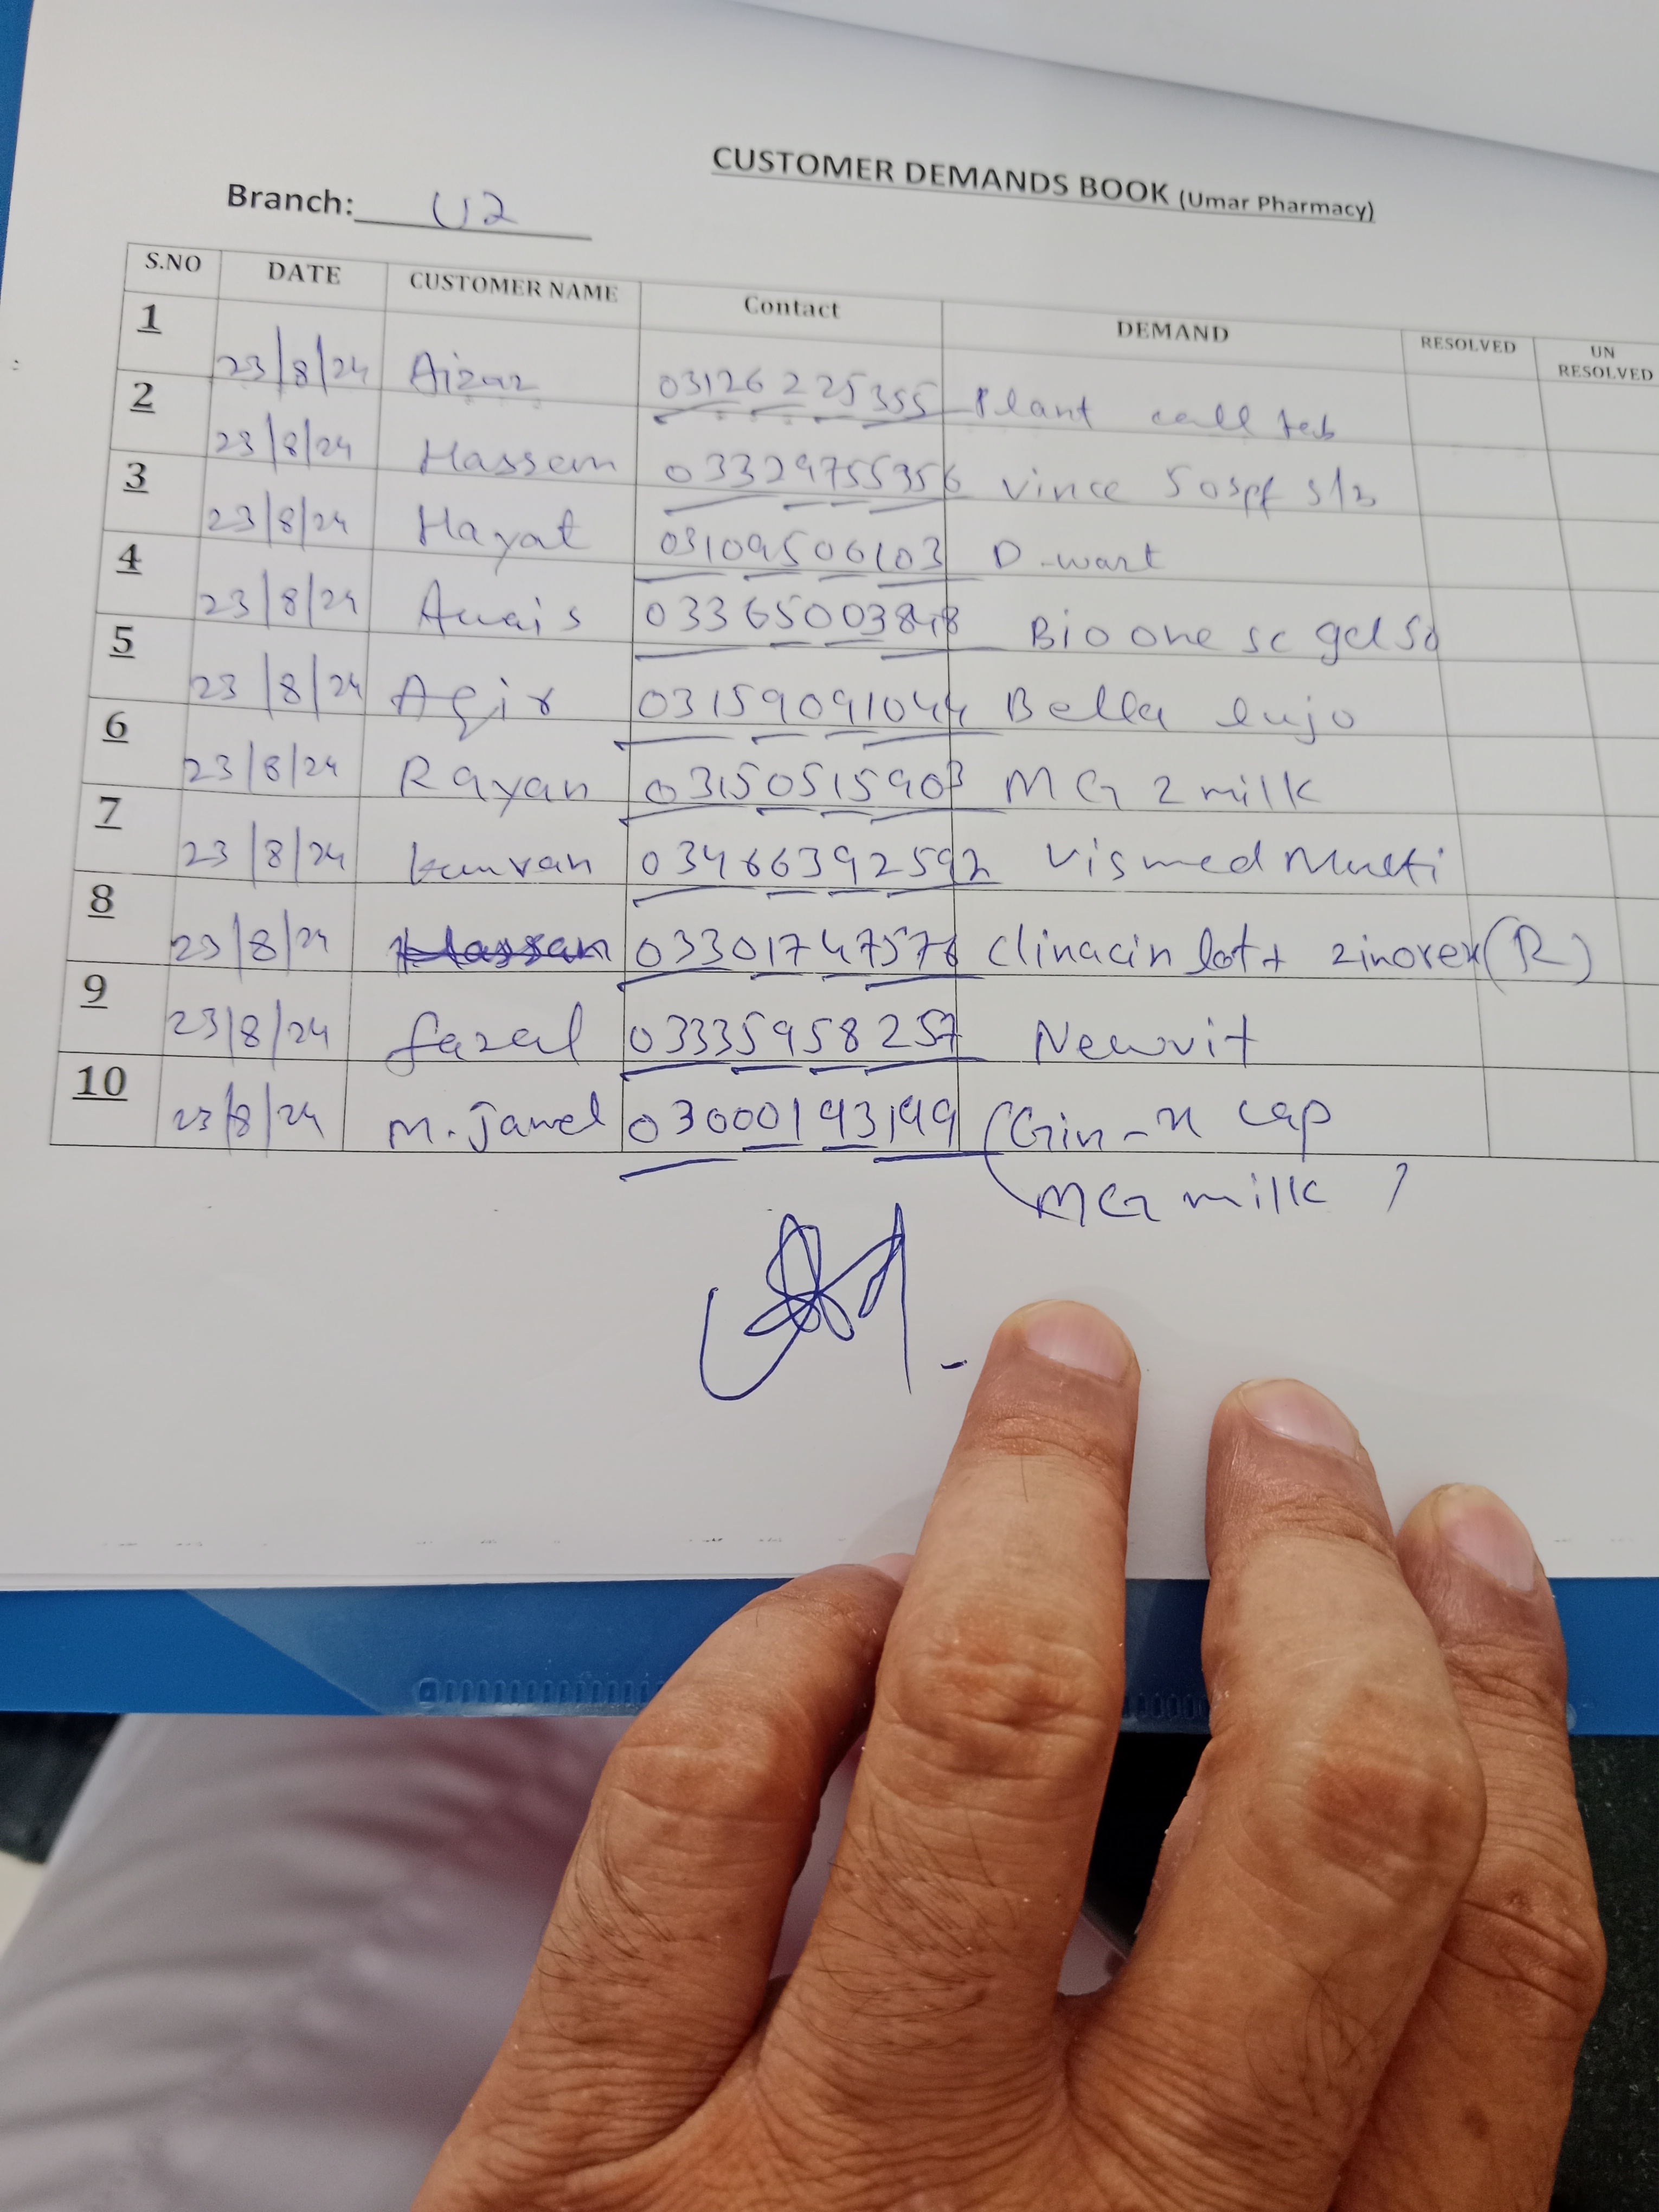 CUSTOMER DEMANDS BOOK (Umar Pharmacy)
Branch: U2
S.NO DATE CUSTOMER NAME Contact DEMAND RESOLVED UN RESOLVED
1 23/8/24 Aizaz 03126225355 Plant call tab
2 23/8/24 Hassan 03329755356 Vince 50spf s/b
3 23/8/24 Hayat 03109506103 D-wart
4 23/8/24 Awais 03365003848 Bio one sc gel
5 23/8/24 Aqir 03159091044 Bella lujo
6 23/8/24 Rayan 03150515903 MG 2 milk
7 23/8/24 kamran 03466392592 Vismed Multi
8 23/8/24 Hassan 03301747576 Clinacin lot + zinorex (R)
9 23/8/24 fazal 03335958257 Newvit
10 23/8/24 M. Jawel 03000193199 (Gin-x cap
MG milk